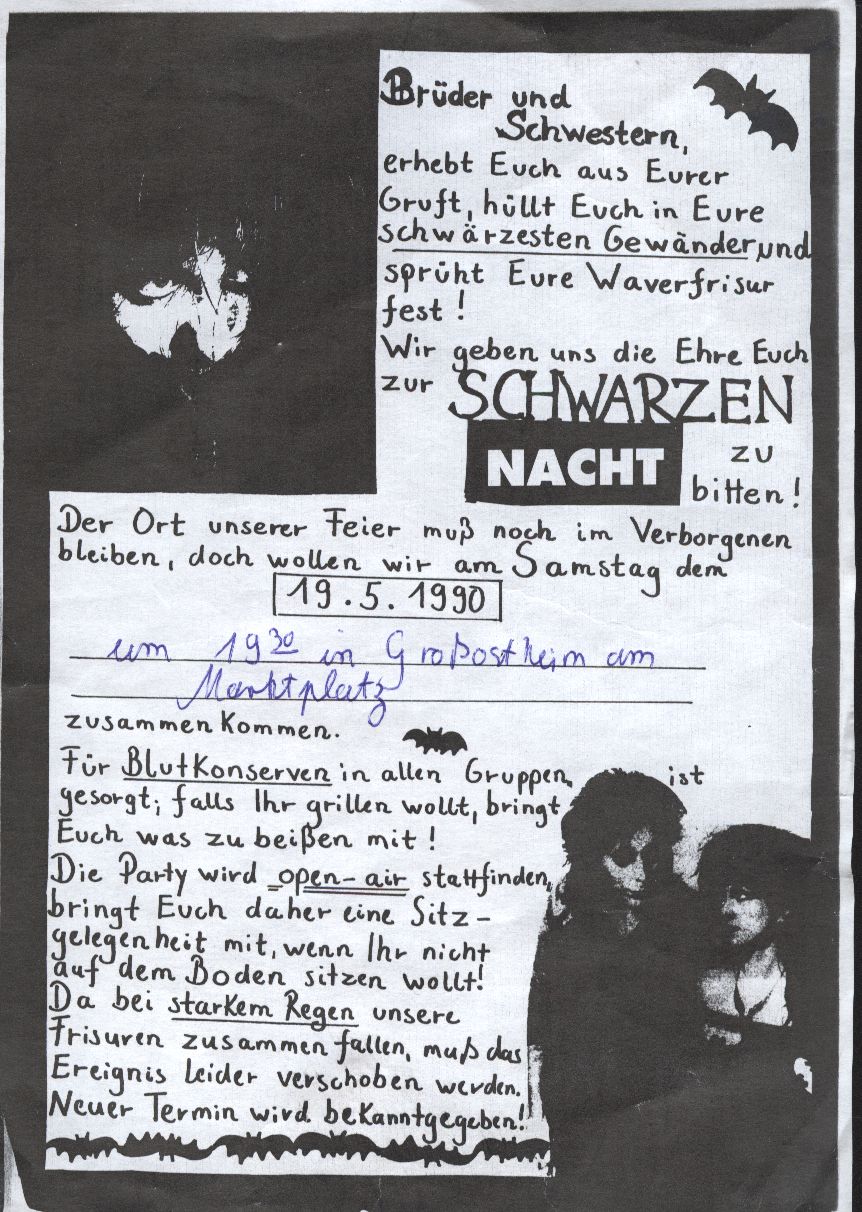 Brüder und
Schwestern,
erhebt Euch aus Eurer
Gruft, hüllt Euch in Eure
schwärzesten Gewänder, und
sprüht Eure Waverfrisur
fest!
Wir geben uns die Ehre Euch
zur SCHWARZEN
NACHT zu
bitten!
Der Ort unserer Feier muß noch im Verborgenen
bleiben, doch wollen wir am Samstag dem
19.5.1990
um 19 30 in Großostheim am
Marktplatz
zusammenkommen.
Für Blutkonserven in allen Gruppen ist
gesorgt; falls Ihr grillen wollt, bringt
Euch was zu beißen mit!
Die Party wird open-air stattfinden,
bringt Euch daher eine Sitz-
gelegenheit mit, wenn Ihr nicht
auf dem Boden sitzen wollt!
Da bei starkem Regen unsere
Frisuren zusammenfallen, muß das
Ereignis leider verschoben werden.
Neuer Termin wird bekanntgegeben!